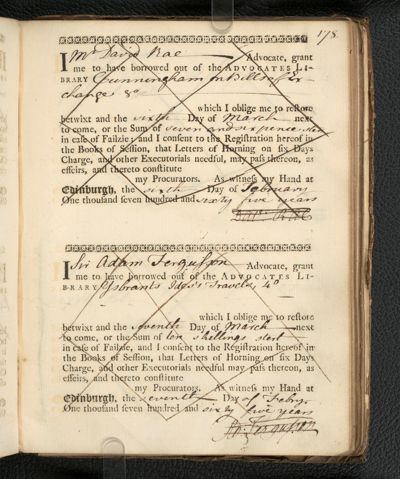 178
I Mr David Rae Advocate, grant
me to have borrowed out of the ADVOCATES LI-
BRARY Cunningham on Bills of Ex-
change &c
which I oblige me to restore
betwixt and the sixth Day of March next
to come, or the Sum of seven and sixpence ster
in case of Failzie; and I consent to the Registration hereof in
the Books of Session, that Letters of Horning on six Days
Charge, and other Executorials needful, may pass thereon, as
effeirs, and thereto constitute
my Procurators. As witness my Hand at
Edinburgh, the sixth Day of February
One thousand seven hundred and sixty five years
Dav: Rae
I Sir Adam Fergusson Advocate, grant
me to have borrowed out of the ADVOCATES LI-
BRARY Ysbrants Ides's Travels, 4o
which I oblige me to restore
betwixt and the seventh Day of March next
to come, or the Sum of ten shellings sterl
in case of Failzie, and I consent to the Registration hereof in
the Books of Session, that Letters of Horning on six Days
Charge, and other Executorials needful may pass thereon, as
effeirs, and thereto constitute
my Procurators. As witness my Hand at
Edinburgh, the seventh Day of Febry.
One thousand seven hundred and sixty five years
Ad. Fergusson